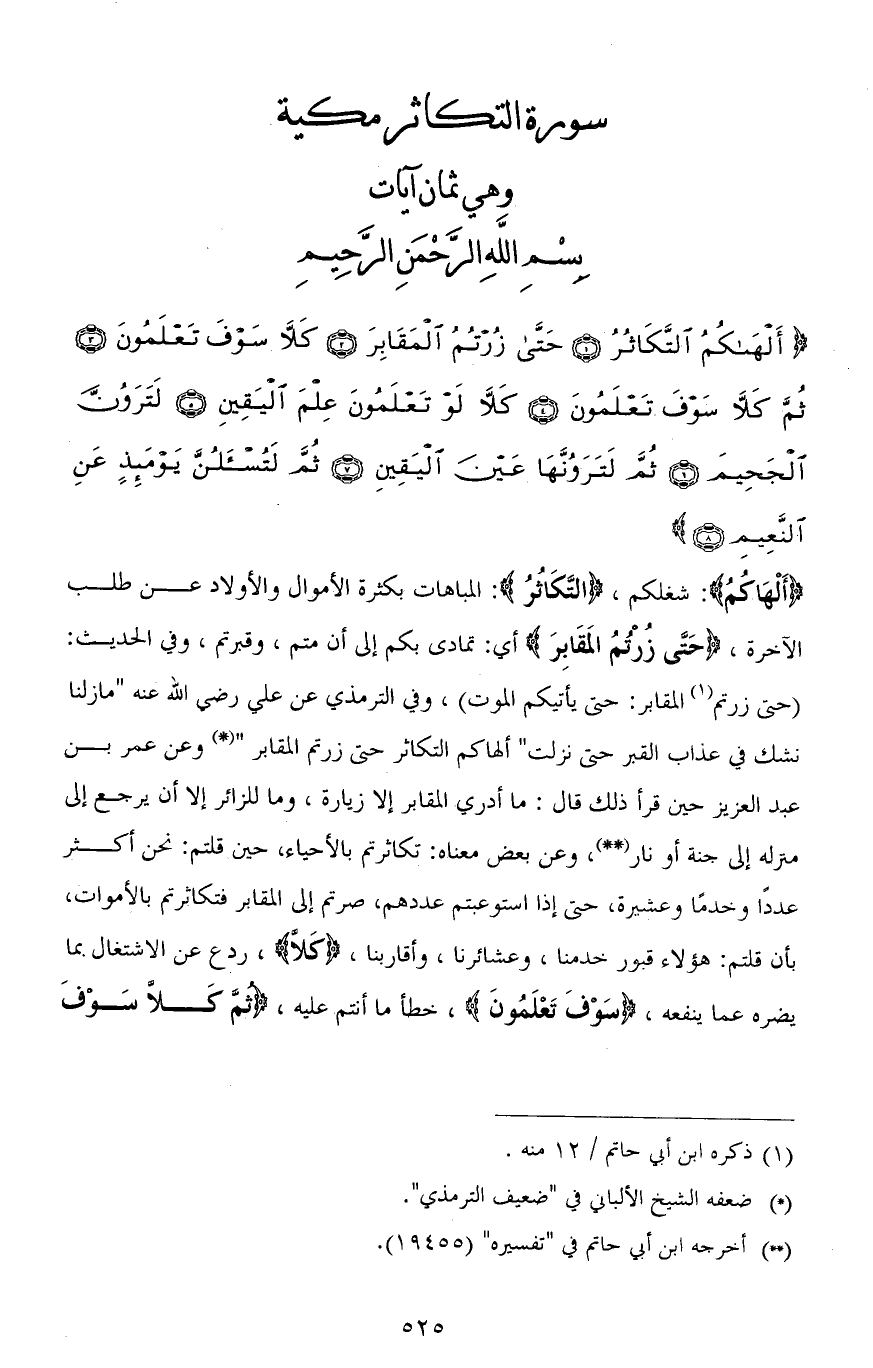 سورة التكاثر مكية
وهي ثمان آيات
بِسْمِ اللَّهِ الرَّحْمَنِ الرَّحِيمِ
﴿ أَلْهَىٰكُمُ ٱلتَّكَاثُرُ ١ حَتَّىٰ زُرْتُمُ ٱلْمَقَابِرَ ٢ كَلَّا سَوْفَ تَعْلَمُونَ ٣
ثُمَّ كَلَّا سَوْفَ تَعْلَمُونَ ٤ كَلَّا لَوْ تَعْلَمُونَ عِلْمَ ٱلْيَقِينِ ٥ لَتَرَوُنَّ
ٱلْجَحِيمَ ٦ ثُمَّ لَتَرَوُنَّهَا عَيْنَ ٱلْيَقِينِ ٧ ثُمَّ لَتُسْـَٔلُنَّ يَوْمَئِذٍ عَنِ
ٱلنَّعِيمِ ٨ ﴾
﴿أَلْهَاكُمُ﴾: شغلكم ، ﴿التَّكَاثُرُ ﴾: المباهات بكثرة الأموال والأولاد عن طلب
الآخرة ، ﴿حَتَّى زُرْتُمُ المَقَابِرَ ﴾ أي: تمادى بكم إلى أن متم ، وقبرتم ، وفي الحديث:
(حتى زرتم(١) المقابر: حتى يأتيكم الموت) ، وفي الترمذي عن علي رضي الله عنه "مازلنا
نشك في عذاب القبر حتى نزلت" ألهاكم التكاثر حتى زرتم المقابر "(*) وعن عمر بن
عبد العزيز حين قرأ ذلك قال : ما أدري المقابر إلا زيارة ، وما للزائر إلا أن يرجع إلى
منزله إلى جنة أو نار(**)، وعن بعض معناه: تكاثرتم بالأحياء، حين قلتم: نحن أكثر
عددًا وخدمًا وعشيرة، حتى إذا استوعبتم عددهم، صرتم إلى المقابر فتكاثرتم بالأموات،
بأن قلتم: هؤلاء قبور خدمنا ، وعشائرنا ، وأقاربنا ، ﴿كَلاَّ﴾ ، ردع عن الاشتغال بما
يضره عما ينفعه ، ﴿سَوْفَ تَعْلَمُونَ ﴾ ، خطأ ما أنتم عليه ، ﴿ثُمَّ كَلاَّ سَوْفَ
(١) ذكره ابن أبي حاتم / ١٢ منه .
(*) ضعفه الشيخ الألباني في "ضعيف الترمذي".
(**) أخرجه ابن أبي حاتم في "تفسيره" (١٩٤٥٥).
٥٢٥